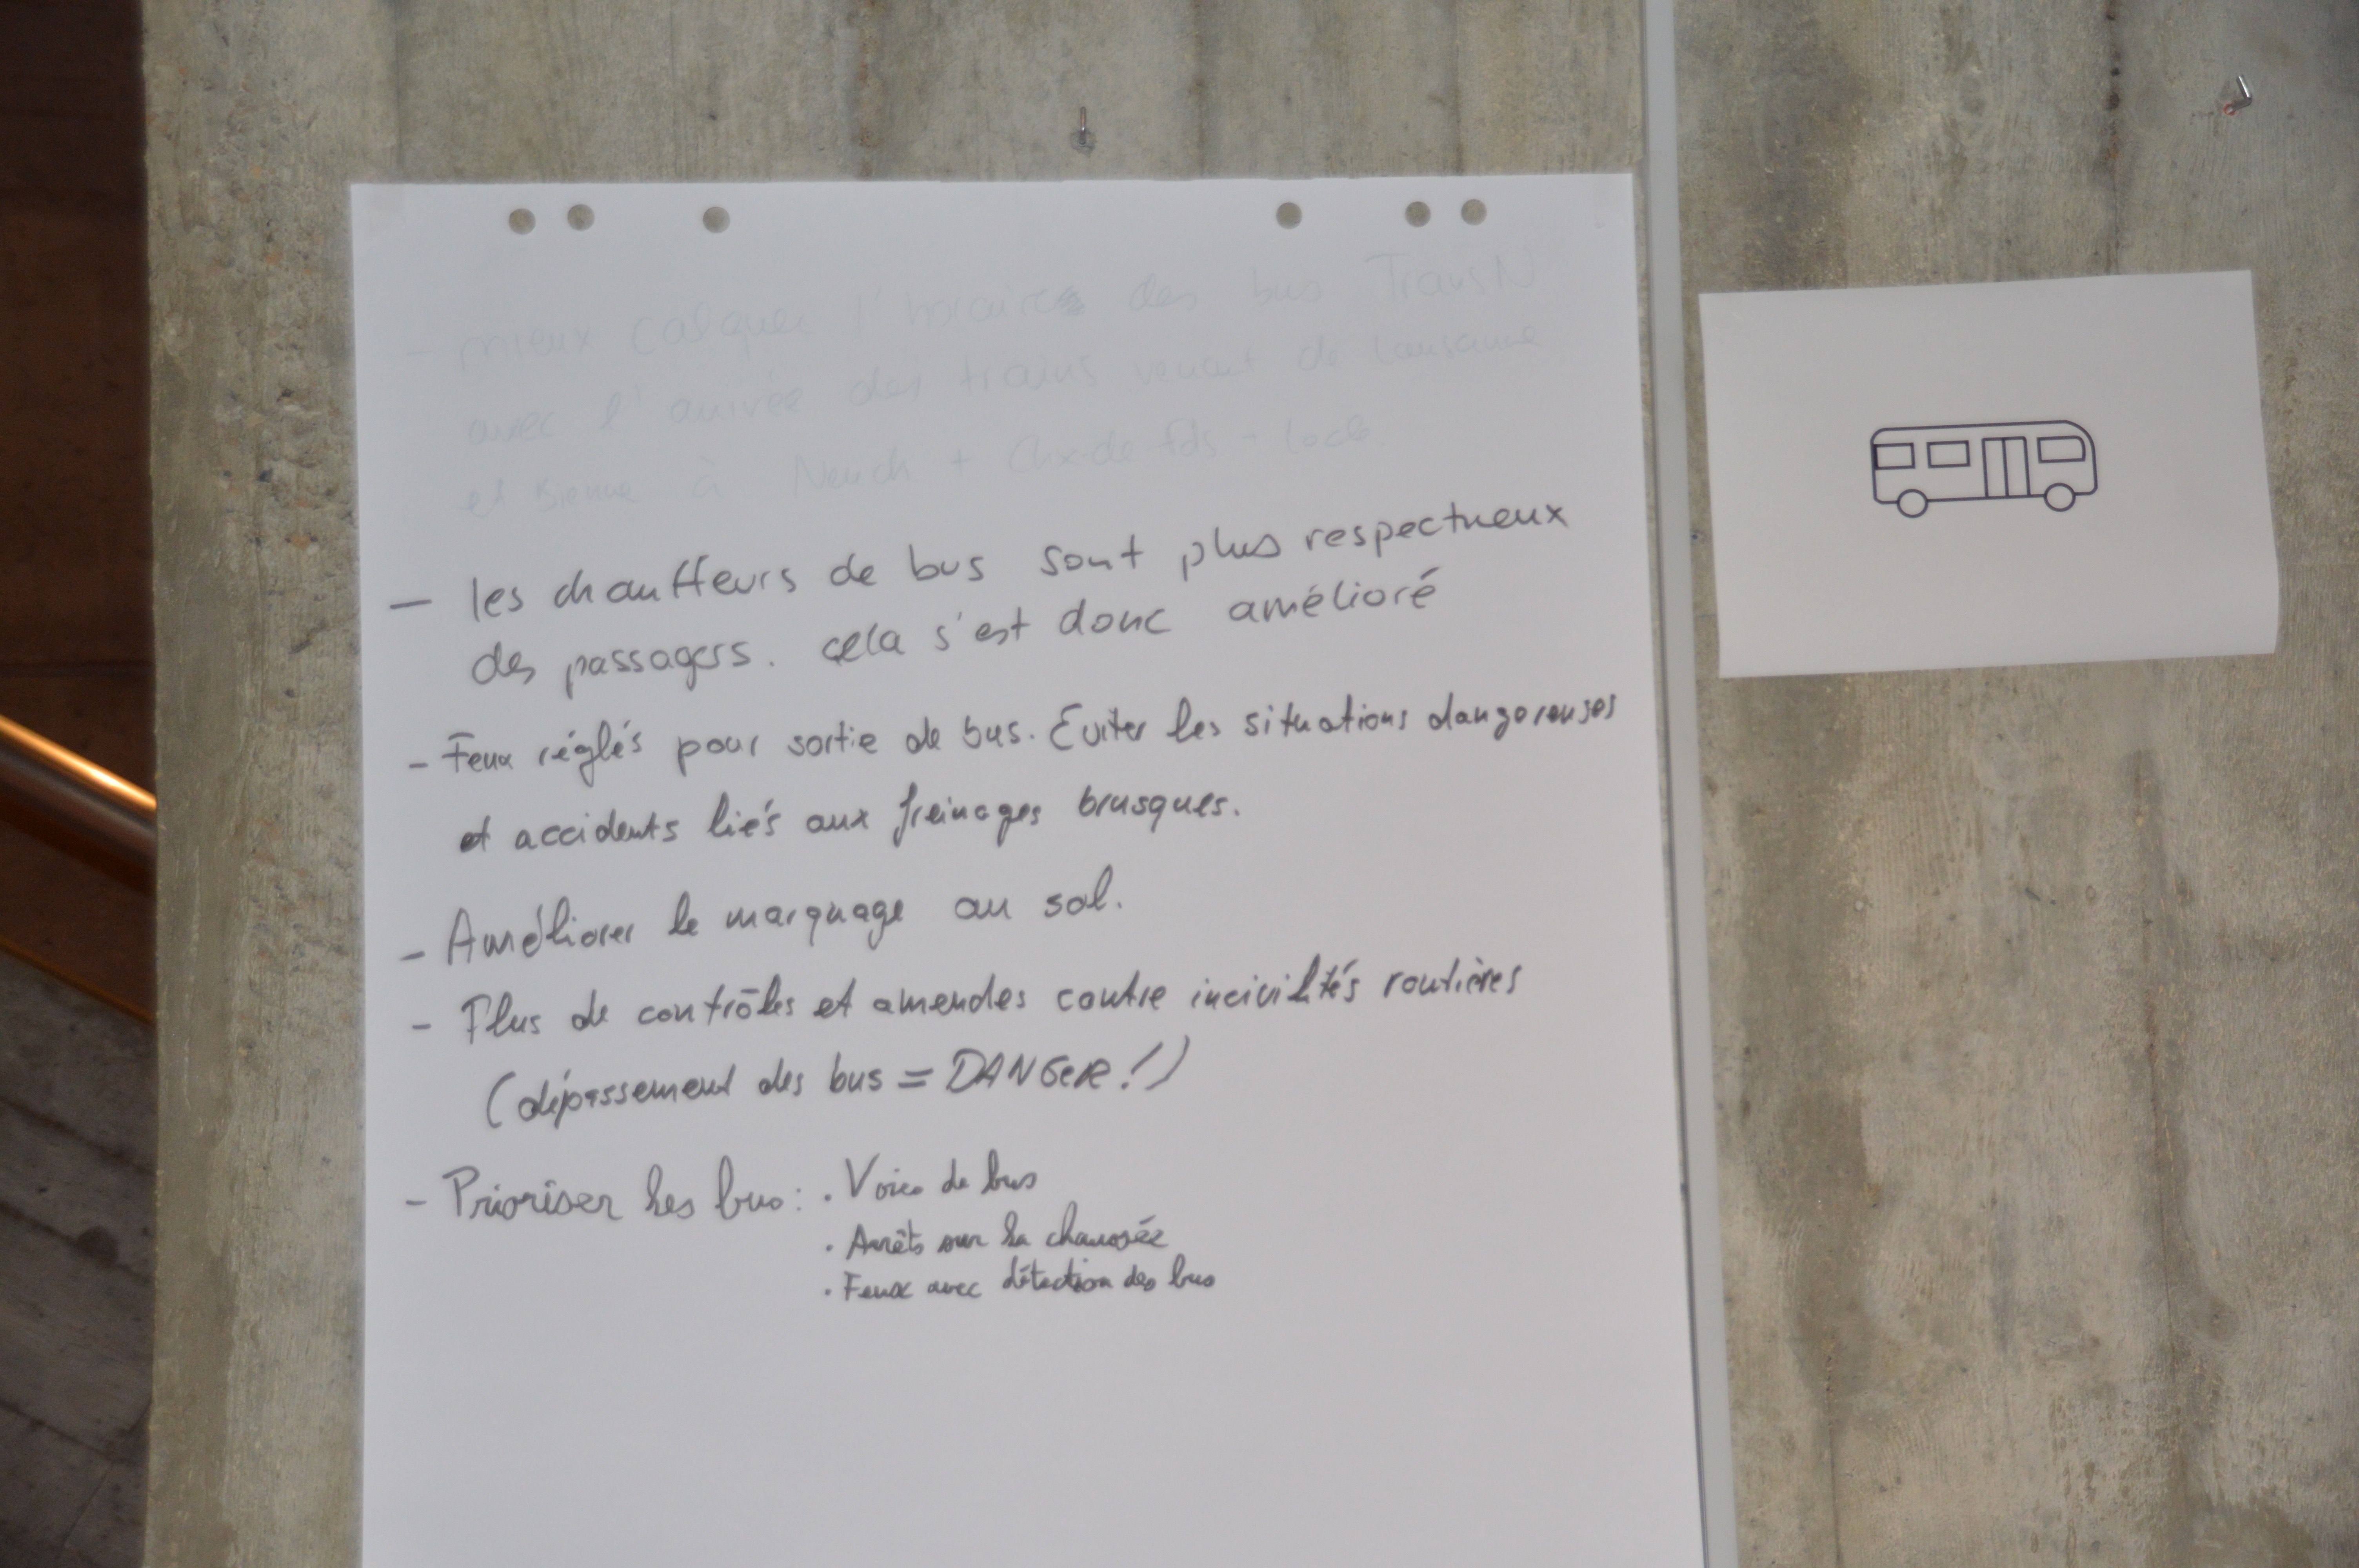 - mieux calquer l'horaire des bus TransN
avec l'arrivée des trains venant de Lausanne
et Bienne à Neuch + Chx-de-fds + Locle
- les chauffeurs de bus sont plus respectueux
des passagers. cela s'est donc amélioré
- Feux réglés pour sortie de bus. Eviter les situations dangereuses
et accidents liés aux freinages brusques.
- Améliorer le marquage au sol.
- Plus de contrôles et amendes contre incivilités routières
(dépassement des bus = DANGER!)
- Prioriser les bus: . Voies de bus
. Arrêts sur la chaussée
. Feux avec détection des bus